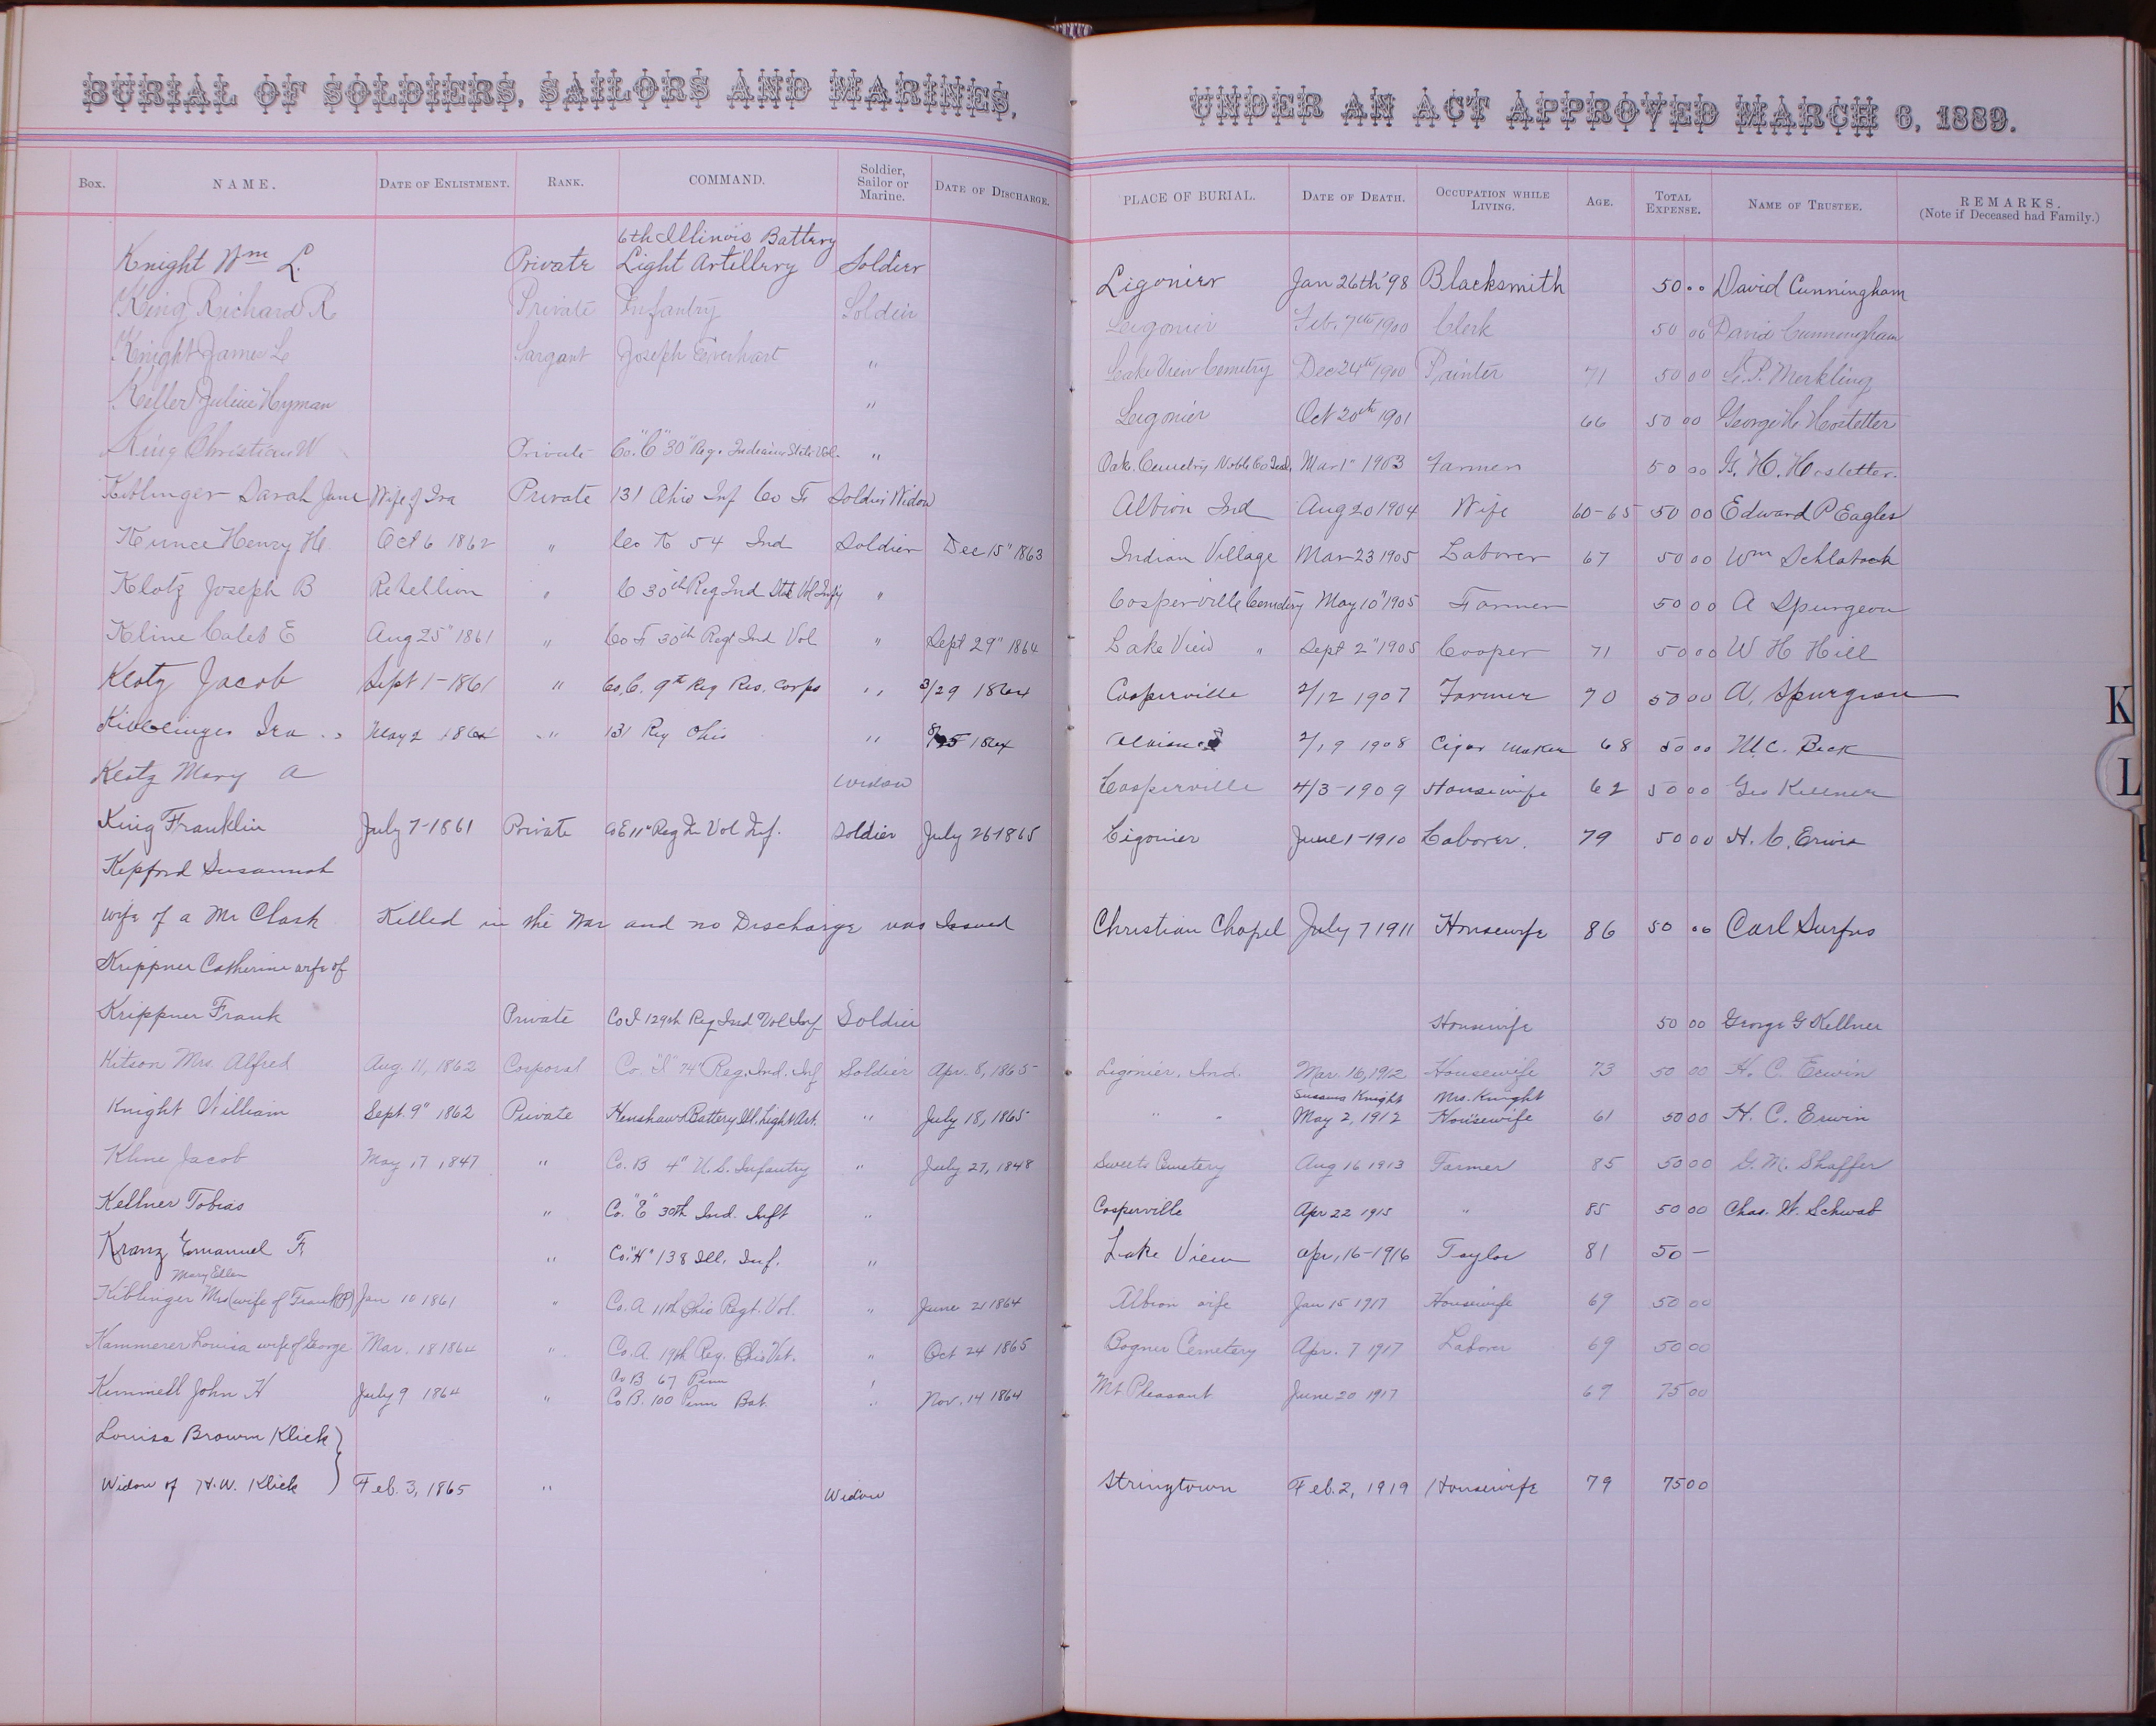 BURIAL OF SOLDIERS, SAILORS AND MARINES, UNDER AN ACT APPROVED MARCH 6, 1889.
Box. NAME. DATE OF ENLISTMENT. RANK. COMMAND. Soldier, Sailor or Marine. DATE OF DISCHARGE. PLACE OF BURIAL. DATE OF DEATH. OCCUPATION WHILE LIVING. AGE. TOTAL EXPENSE. NAME OF TRUSTEE. REMARKS. (Note if Deceased had Family.)
6th Illinois Battery
Knight Wm L. Private Light Artillery Soldier Ligonier Jan 26th '98 Blacksmith 50 00 David Cunningham
King Richard R Private Infantry Soldier Ligonier Feb. 7th 1900 Clerk 50 00 David Cunningham
Knight James L Sargant Joseph Everhart " Lake View Cemetry Dec 24th 1900 Painter 71 50 00 G. P. Merkling
Keller Julius Hyman " Ligonier Oct 20th 1901 66 50 00 George H Hostetter
King Christian W Private Co. "C" 30" Reg. Indiana State Vol. " Oak Cemetry, Noble Co Ind. Mar 1" 1903 Farmer 50 00 G. H. Hostetter.
Kiblinger Sarah Jane Wife of Ira Private 131 Ohio Inf Co F Soldier Widow Albion Ind Aug 20 1904 Wife 60-65 50 00 Edward P Eagles
Kunce Henry H. Oct 6 1862 " Co K 54 Ind Soldier Dec 15" 1863 Indian Village Mar 23 1905 Laborer 67 50 00 Wm
Klotz Joseph B Rebellion " C 30th Reg Ind State Vol Infty " Cosperville Cemetery May 10" 1905 Farmer 50 00 A Spurgeon
Kline Caleb E Aug 25" 1861 " Co F 30th Regt Ind Vol " Sept 29" 1864 Lake View " Sept 2" 1905 Cooper 71 50 00 W H Hill
Klotz Jacob Sept 1-1861 " Co, C. 9th Reg Res. Corps " 3/29 1864 Cosperville 2/12 1907 Farmer 70 50 00 A. Spurgeon
Kiblinger Ira May 2 1864 " 131 Reg Ohio " 1864 Albion 2/19 1908 Cigar Maker 68 50 00 M. C. Beck
Klotz Mary A Widow Cosperville 4/3-1909 Housewife 62 50 00 Geo Kellner
King Franklin July 7-1861 Private Co E 11" Reg In Vol Inf. Soldier July 26-1865 Ligonier June 1-1910 Laborer. 79 50 00 H. C. Erwin
Kepford Susannah
wife of a Mr Clark Killed in the War and no Discharge was Issued Christian Chapel July 7 1911 Housewife 86 50 00 Carl Surfus
Krippner Catherine wife of
Krippner Frank Private Co I 129th Reg Ind Vol Inf Soldier Housewife 50 00 George G Kellner
Kitson Mrs. Alfred Aug. 11, 1862 Corporal Co. "I" 74" Reg. Ind. Inf Soldier Apr. 8, 1865 Ligonier, Ind. Mar. 16, 1912 Housewife 73 50 00 H. C. Erwin
Susana Knight Mrs. Knight
Knight William Sept. 9" 1862 Private Henshaw's Battery Ill. Light Art. " July 18, 1865 " " May 2, 1912 Housewife 61 50 00 H. C. Erwin
Kline Jacob May 17, 1847 " Co. B 4" U.S. Infantry " July 27, 1848 Sweets Cemetery Aug 16 1913 Farmer 85 50 00 G. M. Shaffer
Kellner Tobias " Co. "E" 30th Ind. Inft " Cosperville Apr 22 1915 " 85 50 00 Chas. W. Schwab
Kranz Emanuel F. " Co. "H" 138 Ill. Inf. " Lake View Apr. 16-1916 Taylor 81 50 —
Mary Ellen
Kiblinger Mrs (wife of Frank P) Jan 10 1861 " Co. A 11th Ohio Regt. Vol. " June 21 1864 Albion wife Jan 15 1917 Housewife 69 50 00
Kammerer Louisa wife of George Mar. 18 1864 " Co. A. 19th Reg. Ohio Vet. " Oct 24 1865 Bogner Cemetery Apr. 7 1917 Laborer 69 50 00
Co B 67 Penn
Kimmell John H July 9 1864 " Co B. 100 Penn Bat. " Nov. 14 1864 Mt Pleasant June 20 1917 67 75 00
Louisa Brown Klick
Widow of H. W. Klick Feb. 3, 1865 " Widow Stringtown Feb. 2, 1919 Housewife 79 75 00
K
L